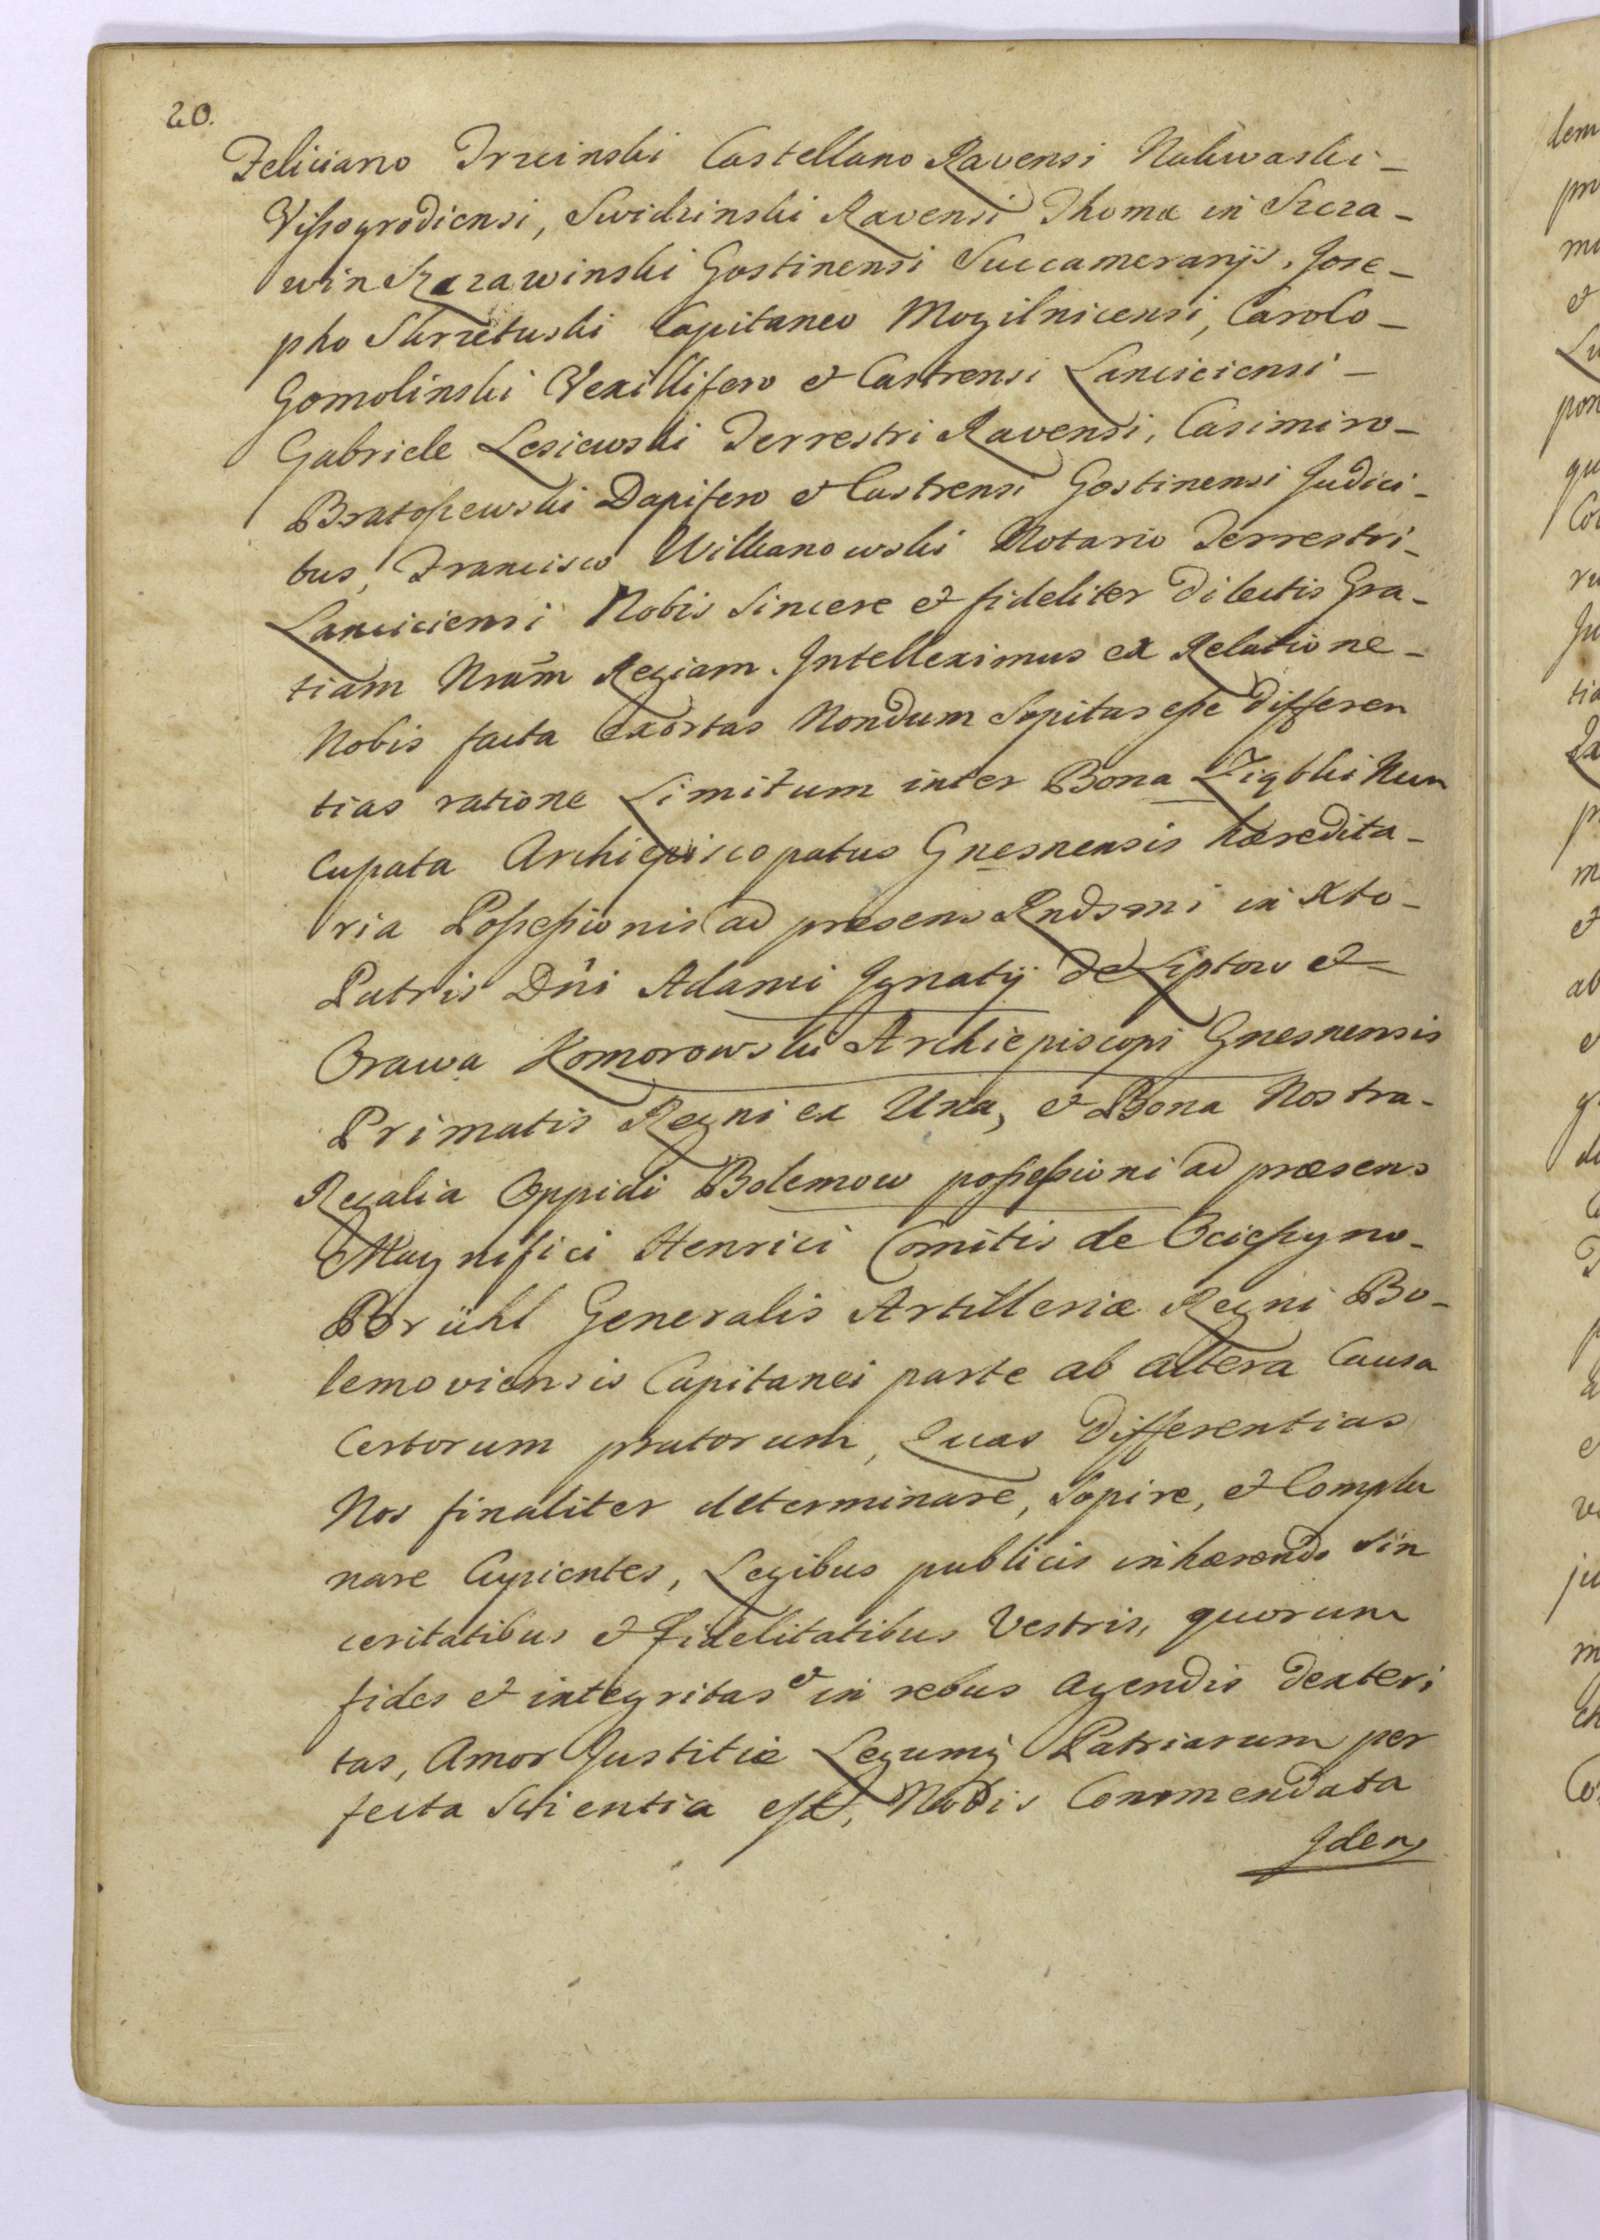 20.
Feliciano Trzcinski Castellano Ravensi Nakwaski-
Vißogrodiensi, Swidzinski Ravensi Thoma in Szcza-
win Szczawinski Gostinensi Succamerarijs, Jose-
pho Skrzetuski Capitaneo Mogilnicensi, Carolo-
Gomolinski Vexillifero et Castrensi Lanciciensi-
Gabriele Lesiewski Terrestri Ravensi, Casimiro-
Bratoßewski Dapifero et Castrensi Gostinensi Judici-
bus, Francisco Wilkanowski Notario Terrestri-
Lanciciensi Nobis Sincere et fideliter Dilectis Gra-
tiam Nram̃ Regiam. Intelleximus ex Relatione-
Nobis facta Exortas Nondum Sopitas eße Differen
tias ratione Limitum inter Bona Ziąbki Nun
cupata Archiepiscopatus Gnesnensis hæredita-
ria Poßeßionis ad præsens Rndsmi in Xto-
Patris Dñi Adami Ignatij de Liptow et
Orawa Komorowski Archiepiscopi Gnesnensis
Primatis Regni ex Una, et Bona Nostra-
Regalia Oppidi Bolemow poßeßioni ad præsens
Magnifici Henrici Comitis de Ocießyno-
Brühl Generalis Artilleriæ Regni Bo-
lemoviensis Capitanei parte ab altera Causa
Certorum pratorum, Quas Differentias
Nos finaliter determinare, Sopire, et Compla
nare Cupientes, Legibus publicis inhærendo Sin
ceritatibus et fidelitatibus Vestris, quorum
fides et integritas et in rebus Agendis Dexteri
tas, Amor Justitiæ Legumq Patriarum per
fecta Scientia est, Nobis Commendata
Iden